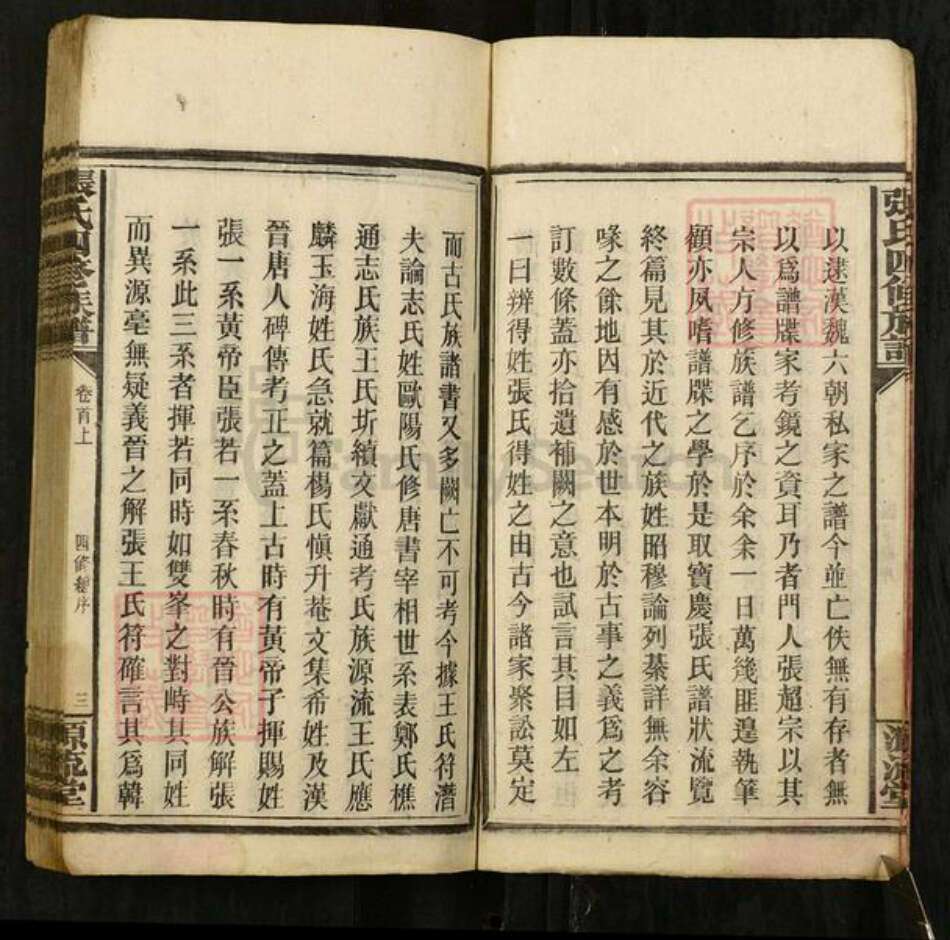 張氏四修族譜
源流堂
以逮漢魏六朝私家之譜今並亡佚無有存者無
以爲譜牒家考鏡之資耳乃者門人張超宗以其
宗人方修族譜乞序於余余一日萬幾匪遑執筆
顧亦夙嗜譜牒之學於是取寶慶張氏譜狀流覽
終篇見其於近代之族姓昭穆論列綦詳無余容
喙之餘地因有感於世本明於古事之義爲之考
訂數條蓋亦拾遺補闕之意也試言其目如左
一曰辨得姓張氏得姓之由古今諸家聚訟莫定
而古氏族諸書又多闕亡不可考今據王氏符潛
夫論志氏姓歐陽氏修唐書宰相世系表鄭氏樵
通志氏族王氏圻續文獻通考氏族源流王氏應
麟玉海姓氏急就篇楊氏愼升菴文集希姓及漢
晉唐人碑傳考正之蓋上古時有黃帝子揮賜姓
張一系黃帝臣張若一系春秋時有晉公族解張
一系此三系者揮若同時如雙峯之對峙其同姓
而異源毫無疑義晉之解張王氏符確言其爲韓
張氏四修族譜
卷首上
四修總序
三
源流堂
FamilySearch